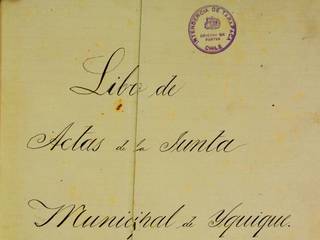 INTENDENCIA DE TARAPACA
CHILE
Libo de
Actas de la Junta
Municipal de Yquique.